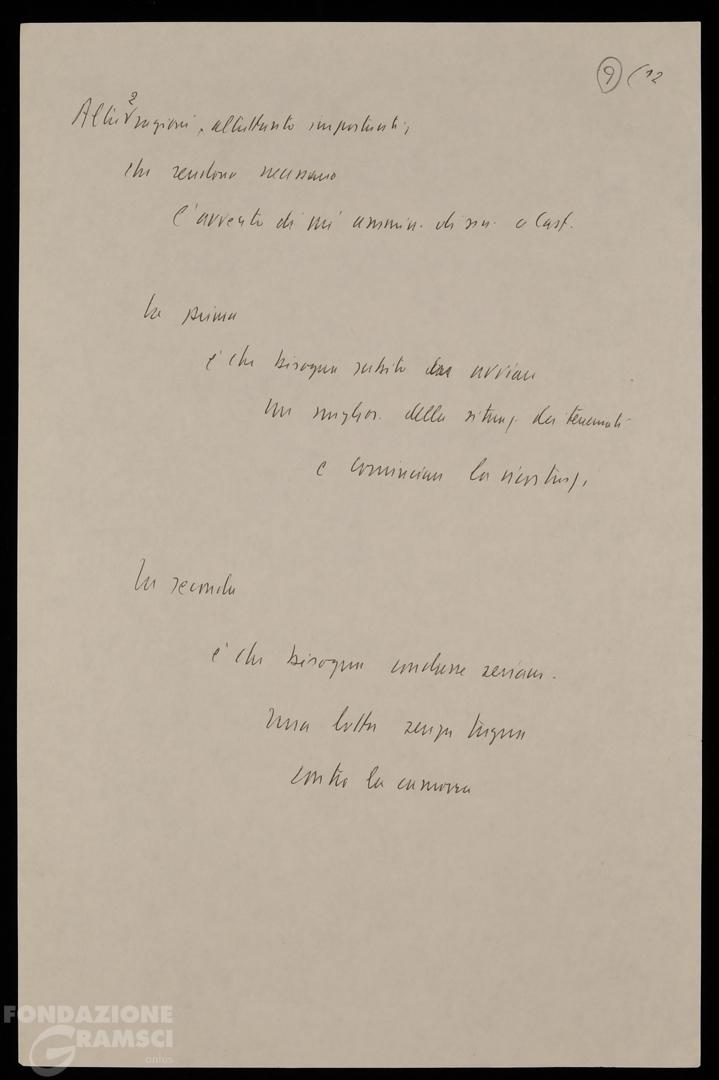 9 (12
2
Altre ragioni, altrettanto importanti,
che rendono necessario
l'avvento di un' ammin. di sin. a Cast.
La prima
è che bisogna subito avviare
un miglior. della situaz. dei terremotati
e cominciare la ricostruz.
La seconda
è che bisogna condurre seriam.
una lotta senza tregua
contro la camorra
FONDAZIONE
GRAMSCI
onlus